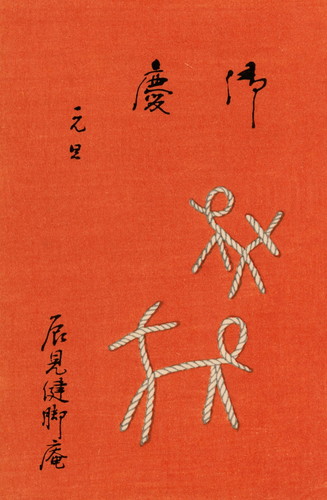 御慶
元旦
見健脚庵